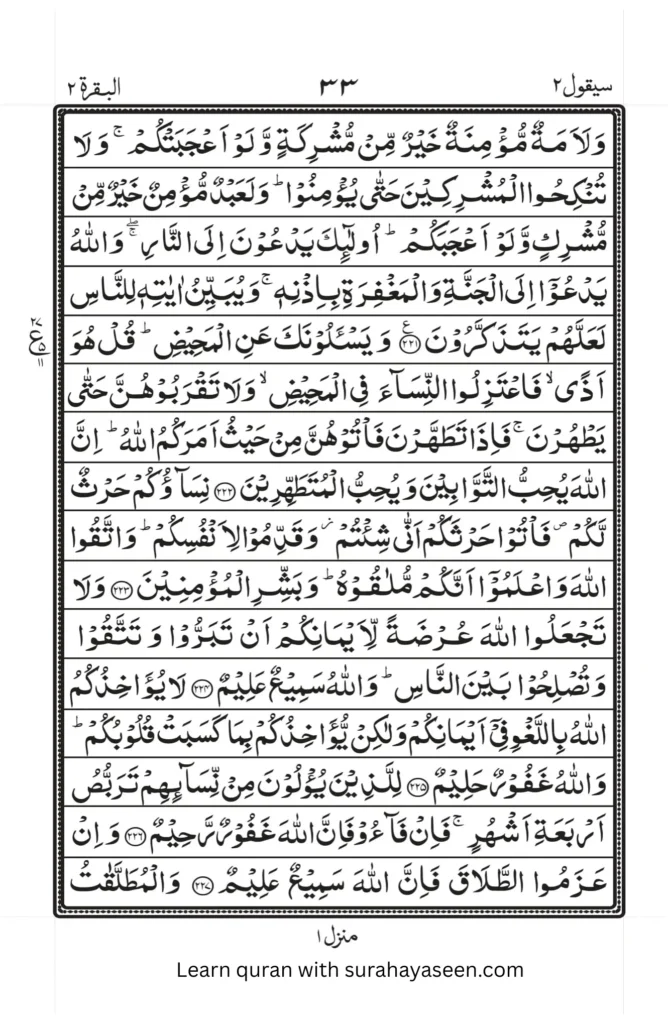 سيقول ٢ ٣٣ البقرة ٢
وَلَاَمَةٌ مُّؤْمِنَةٌ خَيْرٌ مِّنْ مُّشْرِكَةٍ وَّلَوْ اَعْجَبَتْكُمْ ۚ وَلَا
تُنْكِحُوا الْمُشْرِكِيْنَ حَتّٰى يُؤْمِنُوْا ؕ وَلَعَبْدٌ مُّؤْمِنٌ خَيْرٌ مِّنْ
مُّشْرِكٍ وَّلَوْ اَعْجَبَكُمْ ؕ اُولٰٓئِكَ يَدْعُوْنَ اِلَى النَّارِ ۖۚ وَاللّٰهُ
يَدْعُوْٓا اِلَى الْجَنَّةِ وَالْمَغْفِرَةِ بِاِذْنِهٖ ۚ وَيُبَيِّنُ اٰيٰتِهٖ لِلنَّاسِ
لَعَلَّهُمْ يَتَذَكَّرُوْنَ ﴿٢٢١﴾ؑ وَيَسْـَٔلُوْنَكَ عَنِ الْمَحِيْضِ ؕ قُلْ هُوَ
٢٧ ع ٥ ١١
اَذًى ۙ فَاعْتَزِلُوا النِّسَآءَ فِى الْمَحِيْضِ ۙ وَلَا تَقْرَبُوْهُنَّ حَتّٰى
يَطْهُرْنَ ۚ فَاِذَا تَطَهَّرْنَ فَاْتُوْهُنَّ مِنْ حَيْثُ اَمَرَكُمُ اللّٰهُ ؕ اِنَّ
اللّٰهَ يُحِبُّ التَّوَّابِيْنَ وَيُحِبُّ الْمُتَطَهِّرِيْنَ ﴿٢٢٢﴾ نِسَآؤُكُمْ حَرْثٌ
لَّكُمْ ۪ فَاْتُوْا حَرْثَكُمْ اَنّٰى شِئْتُمْ ؗ وَقَدِّمُوْا لِاَنْفُسِكُمْ ؕ وَاتَّقُوا
اللّٰهَ وَاعْلَمُوْٓا اَنَّكُمْ مُّلٰقُوْهُ ؕ وَبَشِّرِ الْمُؤْمِنِيْنَ ﴿٢٢٣﴾ وَلَا
تَجْعَلُوا اللّٰهَ عُرْضَةً لِّاَيْمَانِكُمْ اَنْ تَبَرُّوْا وَتَتَّقُوْا
وَتُصْلِحُوْا بَيْنَ النَّاسِ ؕ وَاللّٰهُ سَمِيْعٌ عَلِيْمٌ ﴿٢٢٤﴾ لَا يُؤَاخِذُكُمُ
اللّٰهُ بِاللَّغْوِ فِىْٓ اَيْمَانِكُمْ وَلٰكِنْ يُّؤَاخِذُكُمْ بِمَا كَسَبَتْ قُلُوْبُكُمْ ؕ
وَاللّٰهُ غَفُوْرٌ حَلِيْمٌ ﴿٢٢٥﴾ لِلَّذِيْنَ يُؤْلُوْنَ مِنْ نِّسَآئِهِمْ تَرَبُّصُ
اَرْبَعَةِ اَشْهُرٍ ۚ فَاِنْ فَآءُوْ فَاِنَّ اللّٰهَ غَفُوْرٌ رَّحِيْمٌ ﴿٢٢٦﴾ وَاِنْ
عَزَمُوا الطَّلَاقَ فَاِنَّ اللّٰهَ سَمِيْعٌ عَلِيْمٌ ﴿٢٢٧﴾ وَالْمُطَلَّقٰتُ
منزل ١
Learn quran with surahayaseen.com